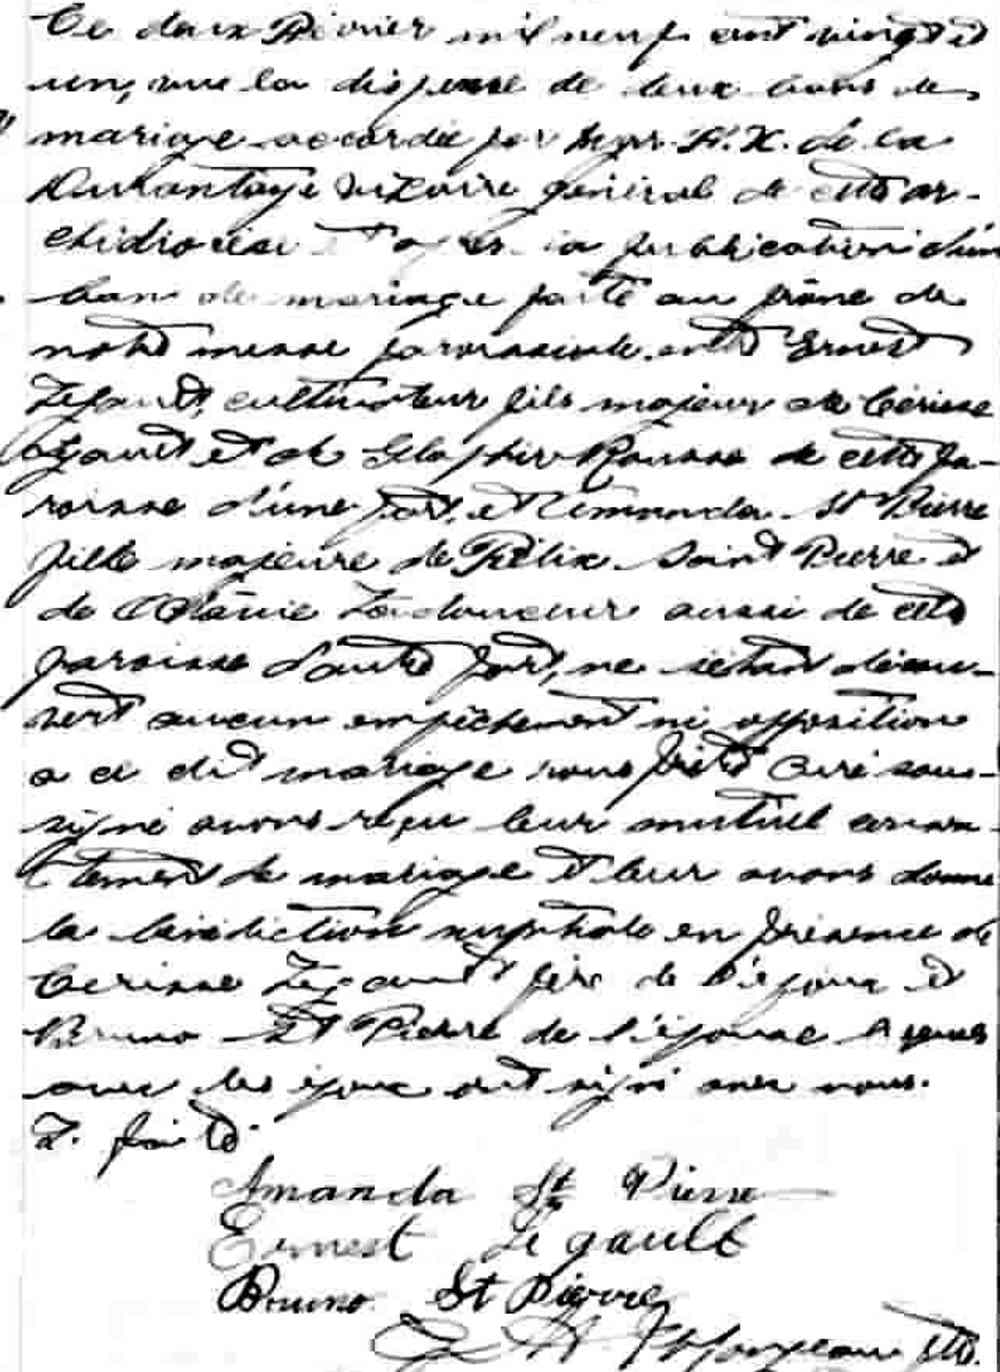 Ce deux Février mil neuf cent vingt et
un, vu la dispense de deux bans de
mariage accordée par Mgr. F. X. de la
Durantaye vicaire général de cet ar-
chidiocèse et après la publication d'un
ban de mariage faite au prône de
notre messe paroissiale entre Ernest
Legault, cultivateur fils majeur de Cérisse
Legault et de Glaphire Rousse de cette pa-
roisse d'une part, et Amanda St Pierre
fille majeure de Félix Saint Pierre et
de Ladouceur aussi de cette
paroisse d'autre part, ne s'étant décou-
vert aucun empêchement ni opposition
a ce dit mariage nous prêtre Curé sous-
signé avons reçu leur mutuel consen-
tement de mariage et leur avons donné
la bénédiction nuptiale en présence de
Cerisse Legault père de l'époux et
Bruno St Pierre de l'épouse lesquels
avec les époux ont signé avec nous.
L. faite.
Amanda St Pierre
Ernest Legault
Bruno St Pierre
ptre.